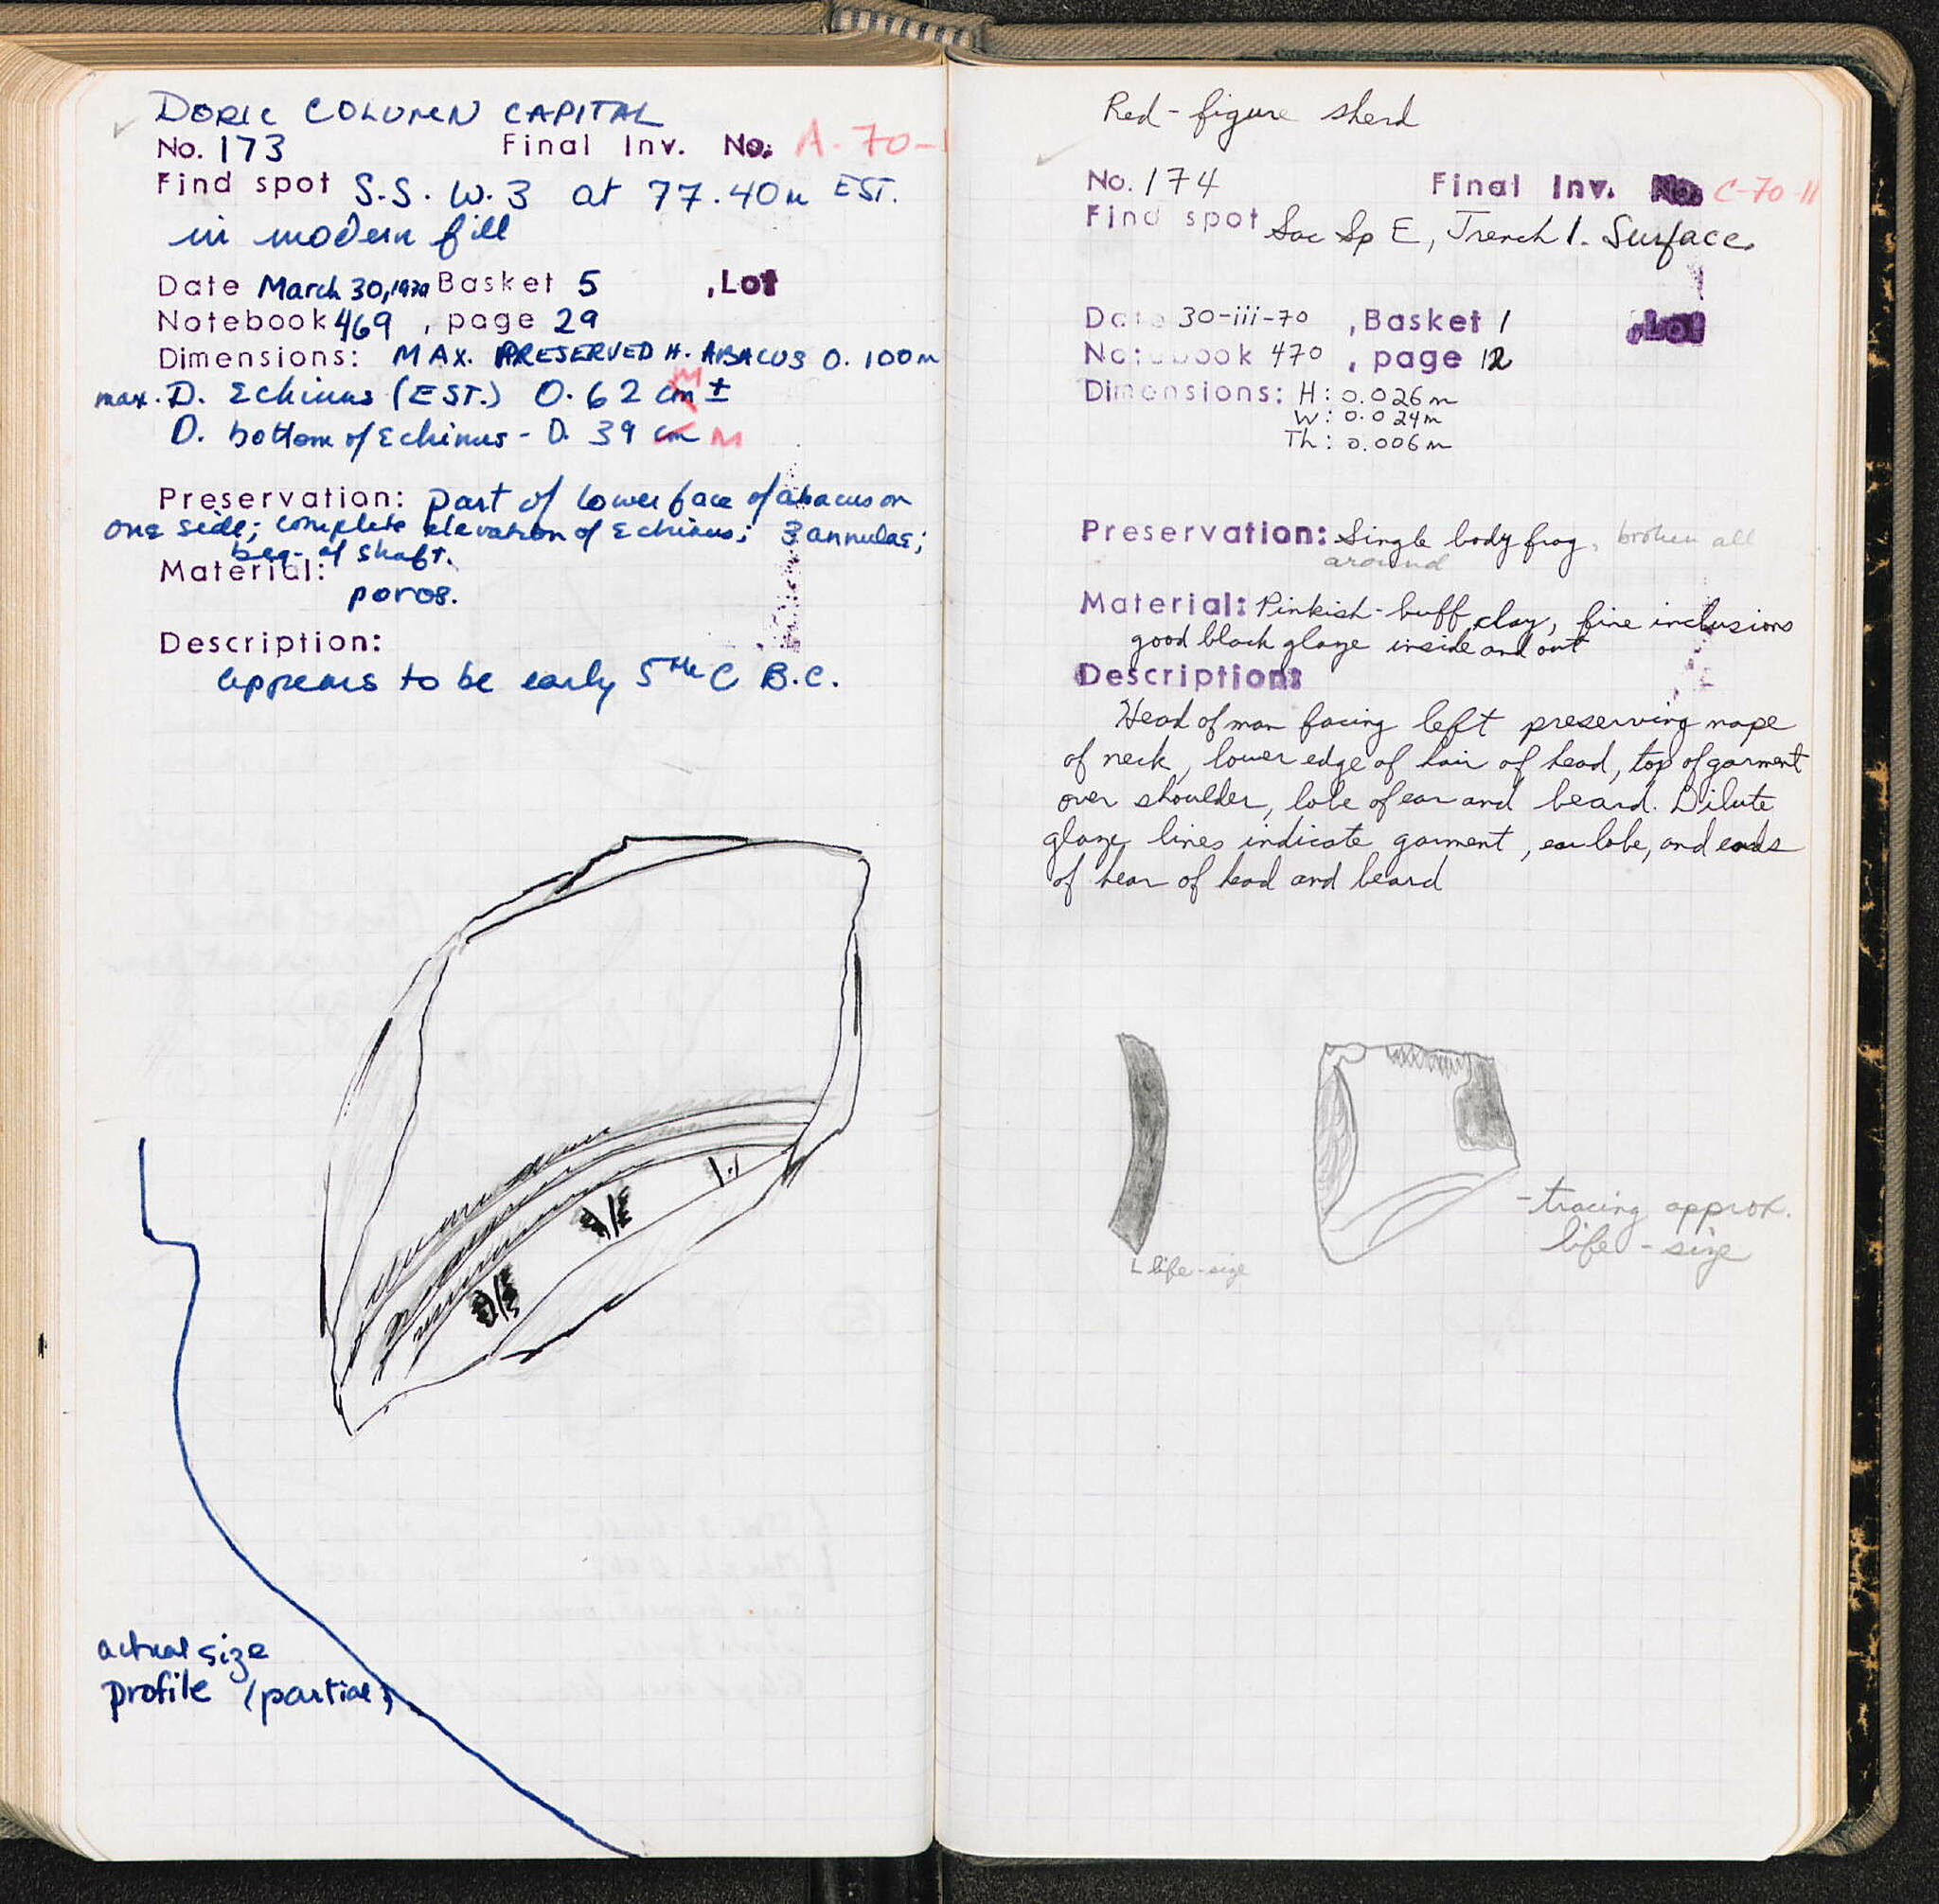 DORIC COLUMN CAPITAL
No. 173 Final Inv. No. A-70-1
Find spot S.S. W. 3 at 77.40m EST.
in modern fill
Date March 30, 1970 Basket 5 , Lot
Notebook 469 , page 29
Dimensions: MAX. PRESERVED H. ABACUS 0.100m
max. D. Echinus (EST.) 0.62 cm M ±
D. bottom of Echinus - 0.39 cm M
Preservation: part of lower face of abacus on
one side; complete elevation of Echinus; 3 annulae;
beg. of shaft.
Material:
poros.
Description:
appears to be early 5the C B.C.
actual size
profile (partial)
Red-figure sherd
No. 174 Final Inv. No. C-70-11
Find spot Sac Sp E, Trench 1. Surface.
Date 30-iii-70 , Basket 1 , Lot
Notebook 470 , page 12
Dimensions: H: 0.026m
W: 0.024m
Th: 0.006m
Preservation: Single body frag, broken all
around
Material: Pinkish-buff clay, fine inclusions
good black glaze inside and out
Description:
Head of man facing left preserving nape
of neck, lower edge of hair of head, top of garment
over shoulder, lobe of ear and beard. Dilute
glaze lines indicate garment, ear lobe, and ends
of hear of head and beard
life-size
- tracing approx.
life-size